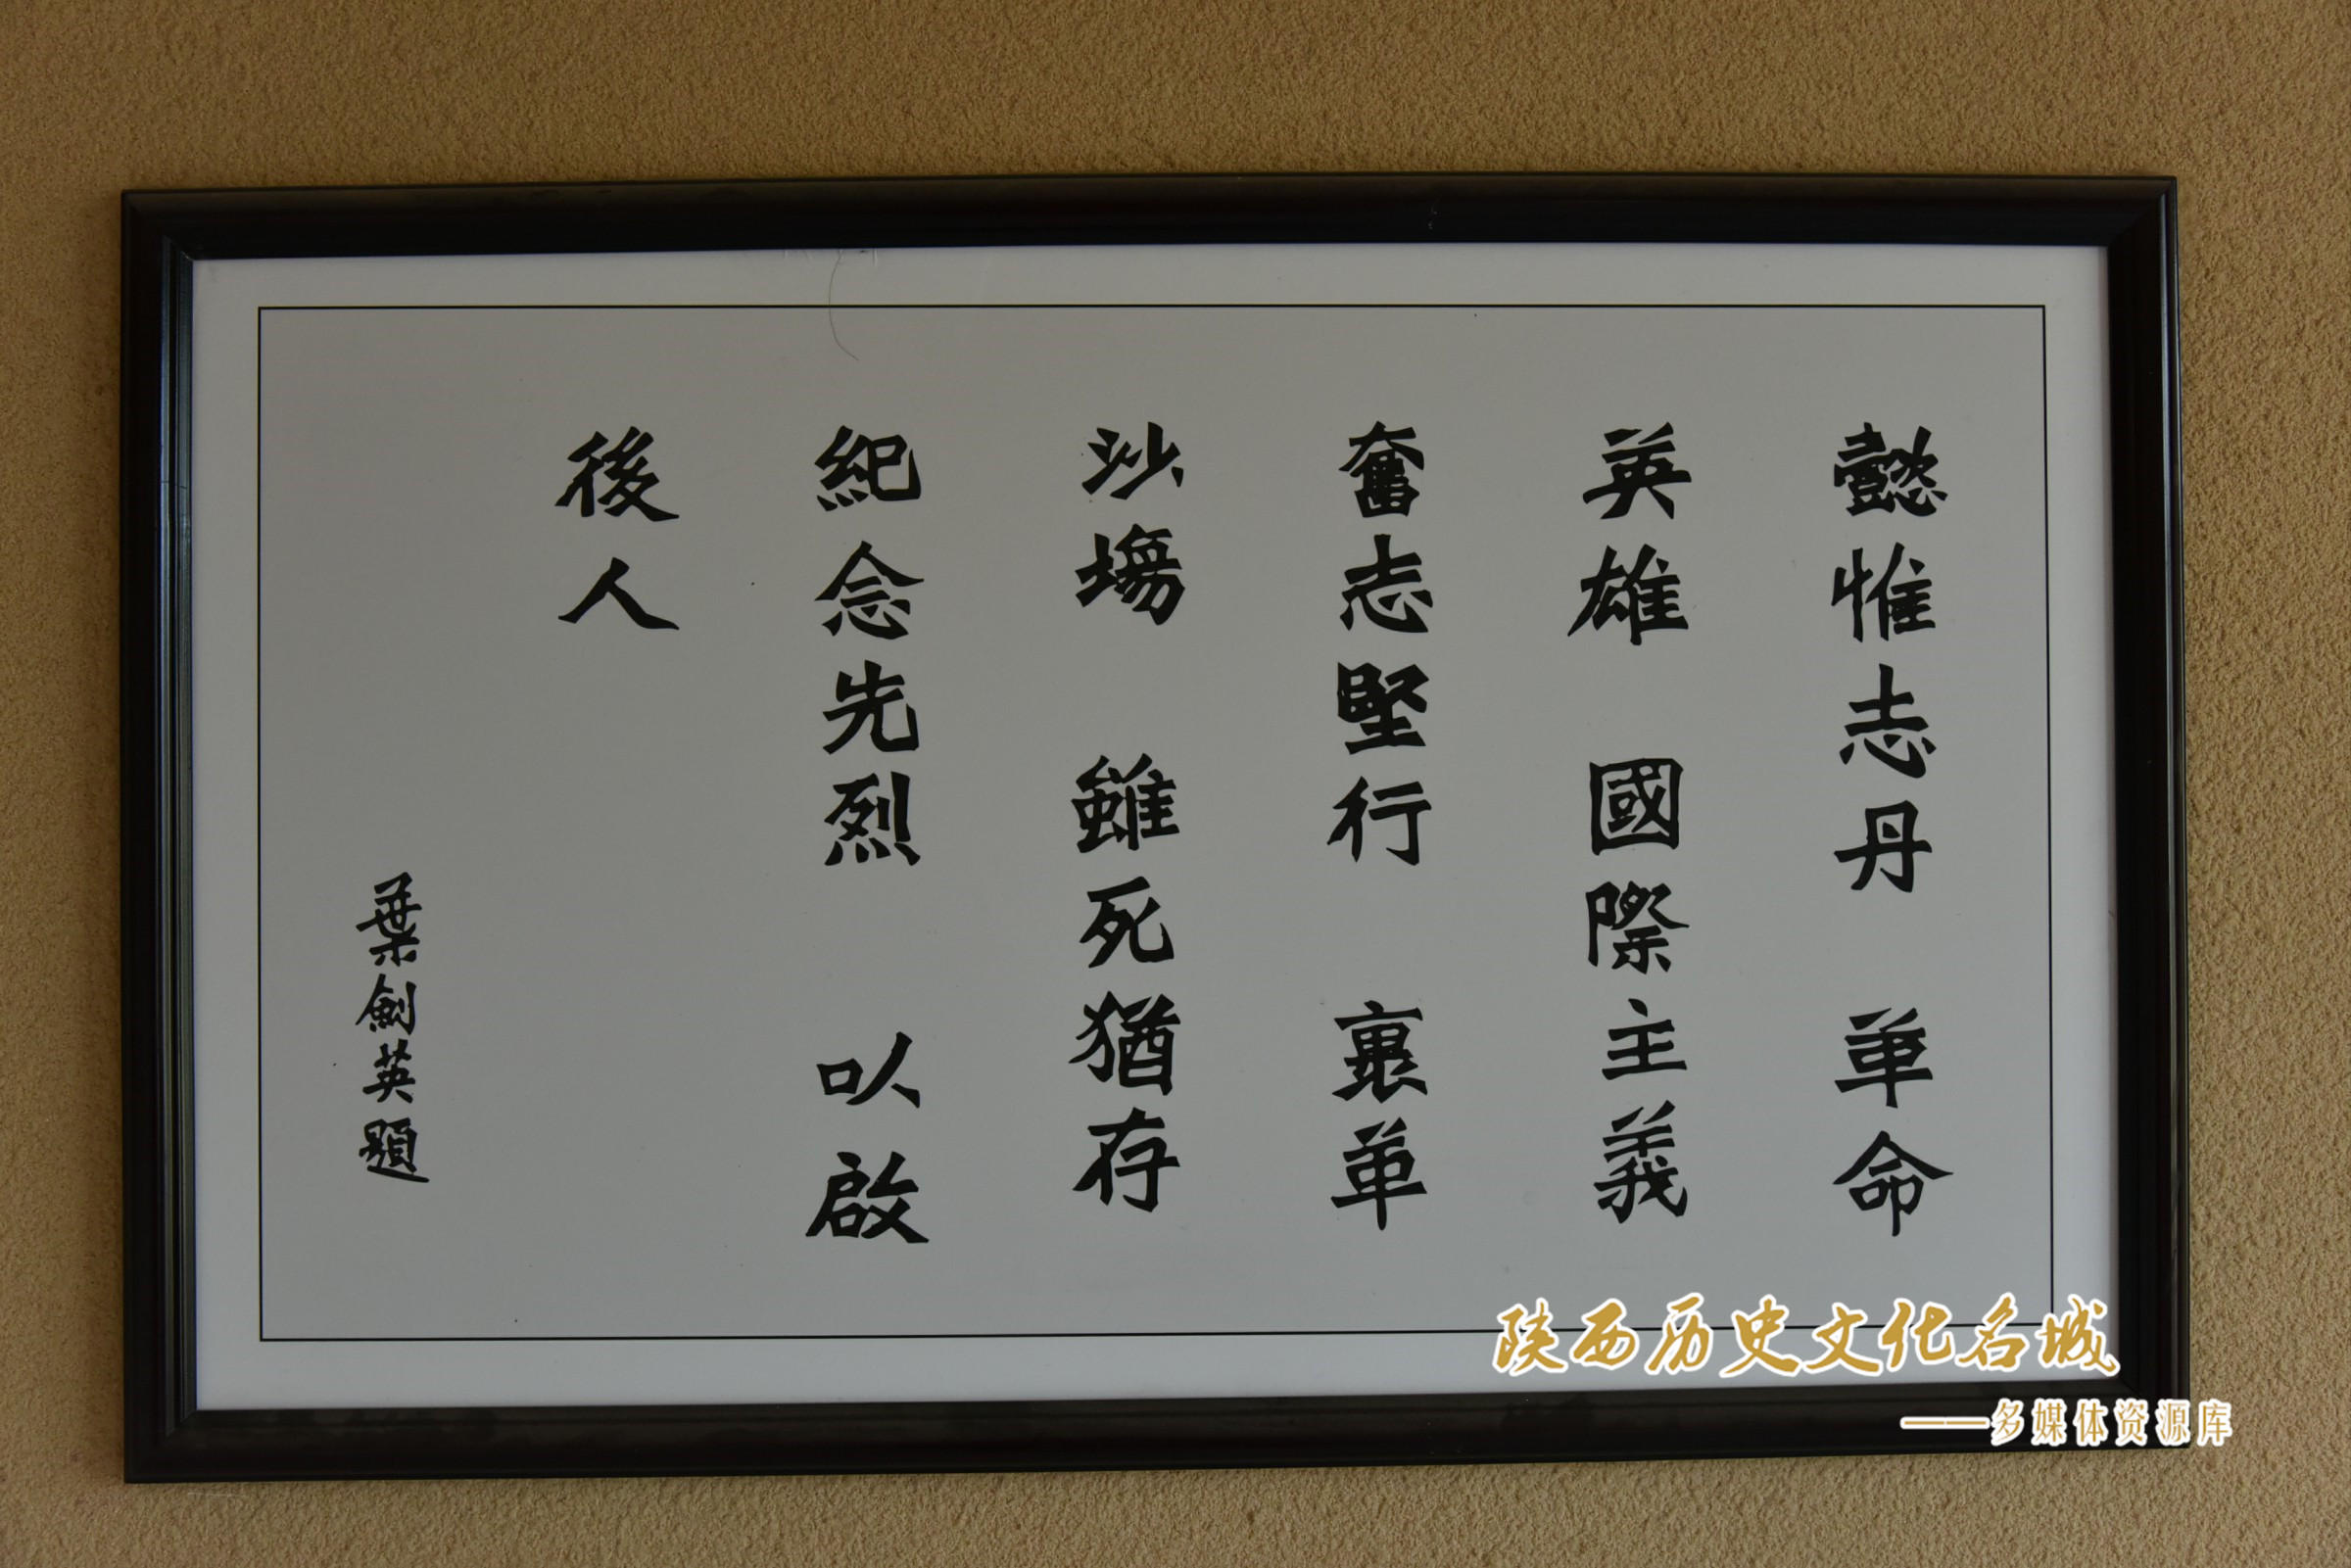 懿惟志丹 革命
英雄 國際主義
奮志堅行 裹革
沙場 雖死猶存
紀念先烈 以啟
後人
葉劍英題
陕西历史文化名城
——多媒体资源库